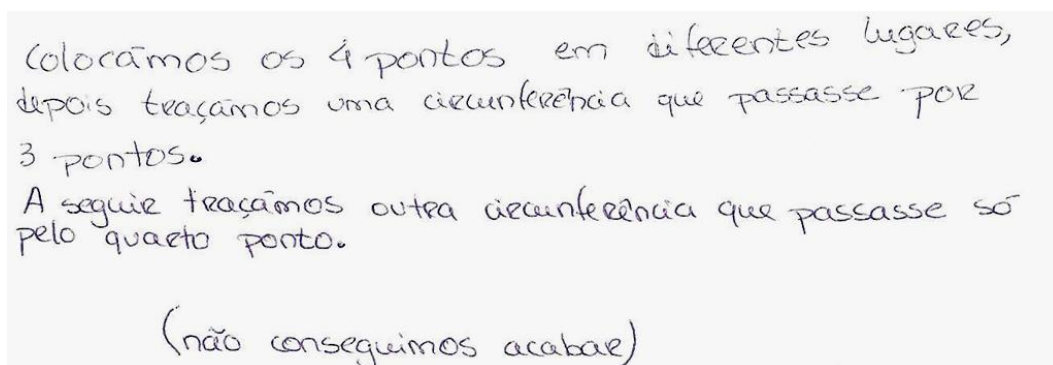 Colocámos os 4 pontos em diferentes lugares,
depois traçámos uma circunferência que passasse por
3 pontos.
A seguir traçámos outra circunferência que passasse só
pelo quarto ponto.
(não conseguimos acabar)